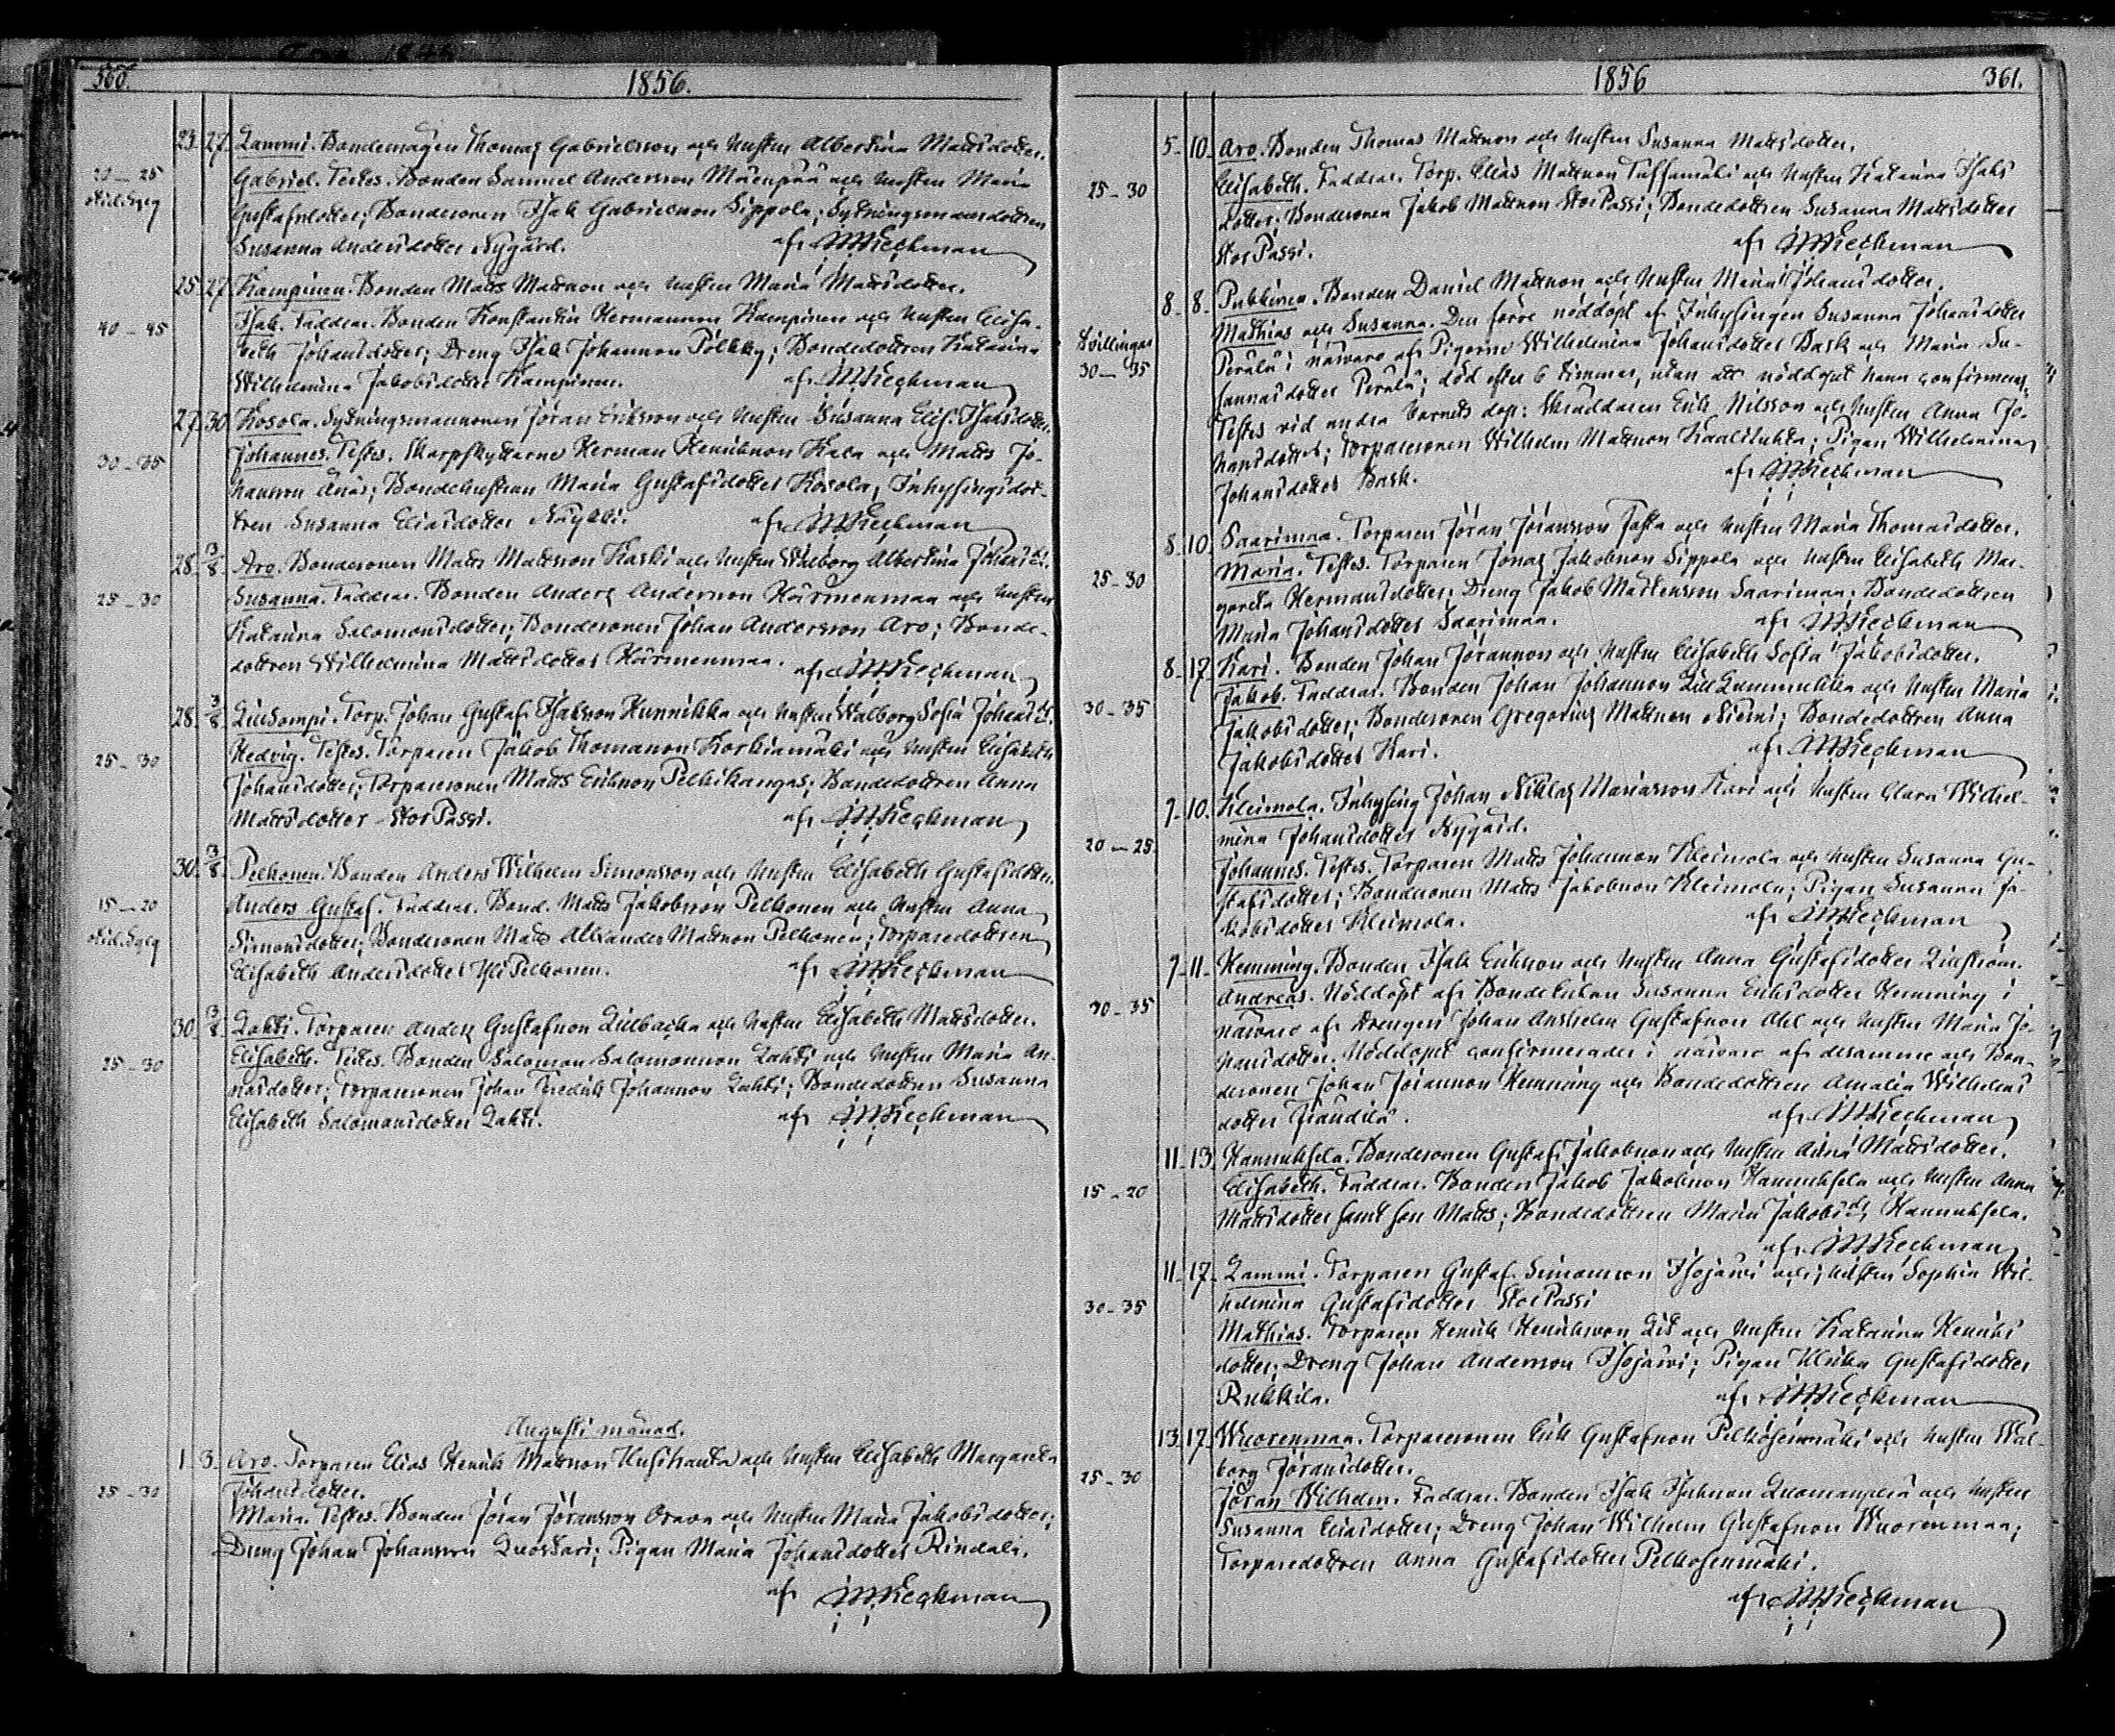 360.
1856.
23. 27. Lammi. Bondemågen Thomas Gabrielsson och hustru Albertina Mattsdotter.
20-25 Gabriel. Testes. Bonden Samuel Andersson Mäenpää och hustru Maria
Gustafsdotter; Bondesonen Isak Gabrielsson Sippola; Sytningsmansdottren
Susanna Andersdotter Nygård. af MHeckman
25. 27. Kampinen. Bonden Matts Mattsson och hustru Maria Mattsdotter.
40-45 Isak. Faddrar. Bonden Konstantin Hermansson Kampinen och hustru Elisa-
beth Johansdotter; Dreng Isak Johansson Pölkky; Bondedottren Katarina
Wilhelmina Jakobsdotter Kampinen. af MHeckman
27. 30. Kosola. Sytningsmanssonen Jöran Eriksson och hustru Susanna Elis. Isaksdotter.
30-35 Johannes. Testes. Skarpskyttarne Herman Henriksson Kala och Matts Jo-
hansson Anäs; Bondehustrun Maria Gustafsdotter Kosola; Inhysingsdot-
tren Susanna Eliasdotter Näykki. af MHeckman
28. 3/8 Aro. Bondesonen Matts Mattsson Kaski och hustru Walborg Albertina Johansdr.
25-30 Susanna. Faddrar. Bonden Anders Andersson Härmenmaa och hustru
Katarina Salomonsdotter; Bondesonen Johan Andersson Aro; Bonde-
dottren Wilhelmina Mattsdotter Härmenmaa. af MHeckman
28. 3/8 LillSompi. Torp. Johan Gustaf Isaksson Hunnikka och hustru Walborg Sofia Johansdr.
25-30 Hedvig. Testes. Torparen Jakob Thomasson Korkiamäki och hustru Elisabeth
Johansdotter; Torparesonen Matts Eriksson Pelkikangas; Bondedottren Anna
Mattsdotter StorPassi. af MHeckman
30. 3/8. Pelkonen. Bonden Anders Wilhelm Simonsson och hustru Elisabeth Gustafsdotter.
15-20 Anders Gustaf. Faddrar. Bond. Matts Jakobsson Pelkonen och hustru Anna
Simonsdotter; Bondesonen Matts Alexander Mattsson Pelkonen; Torparedottren
Elisabeth Andersdotter YliPelkonen. af MHeckman
30. 3/8. Lahti. Torparen Anders Gustafsson Lillbacka och hustru Elisabeth Mattsdotter.
25-30 Elisabeth. Testes. Bonden Salomon Salomonsson Lahti och hustru Maria An-
dersdotter; Torparesonen Johan Fredrik Johansson Lahti; Bondedottren Susanna
Elisabeth Salomonsdotter Lahti. af MHeckman
Augusti månad.
1. 3. Aro. Torparen Elias Henrik Mattsson Husihauta och hustru Elisabeth Margareta
25-30 Johansdotter.
Maria. Testes. Bonden Jöran Jöransson Orava och hustru Maria Jakobsdotter;
Dreng Johan Johansson Luostari; Pigan Maria Johansdotter Rindala.
af MHeckman
1856
361.
5. 10. Aro. Bonden Thomas Mattsson och hustru Susanna Mattsdotter.
25-30 Elisabeth. Faddrar. Torp. Elias Mattsson Tuffamäki och hustru Katarina Isaks
dotter; Bondesonen Jakob Mattsson StorPassi; Bondedottren Susanna Mattsdotter
StorPassi. af MHeckman
8. 8. Pukkinen. Bonden Daniel Mattsson och hustru Maria Johansdotter.
Tvillingar Mathias och Susanna. Den förre nöddöpt af Inhysingen Susanna Johansdotter
30-35 Perälä i närvaro af Pigorne Wilhelmina Johansdotter Bask och Maria Su-
sannasdotter Perälä; död efter 6 timmar, utan att nöddopet hann confirmeras.
Testes vid andra barnets dop: Skräddaren Erik Nilsson och hustru Anna Jo-
hansdotter; Torparesonen Wilhelm Mattsson Kaaliluhta; Pigan Wilhelmina
Johansdotter Bask. af MHeckman
8. 10. Saarimaa. Torparen Jöran Jöransson Pasta och hustru Maria Thomasdotter.
25-30 Maria. Testes. Torparen Jonas Jakobsson Sippola och hustru Elisabeth Mar-
gareta Hermansdotter; Dreng Jakob Mårtensson Saarimaa; Bondedottren
Maria Johansdotter Saarimaa. af MHeckman
8. 17. Kari. Bonden Johan Jöransson och hustru Elisabeth Sofia Jakobsdotter.
30-35 Jakob. Faddrar. Bonden Johan Johansson LillLummukka och hustru Maria
Jakobsdotter; Bondesonen Gregorius Mattsson Niemi; Bondedottren Anna
Jakobsdotter Kari. af MHeckman
9. 10. Kleimola. Inhysing Johan Niklas Mariasson Kari och hustru Clara Wilhel-
20-25 mina Johansdotter Nygård.
Johannes. Testes. Torparen Matts Johansson Kleimola och hustru Susanna Gu-
stafsdotter; Bondesonen Matts Jakobsson Kleimola; Pigan Susanna Ja-
kobsdotter Kleimola. af MHeckman
9. 11. Hemming. Bonden Isak Eriksson och hustru Anna Gustafsdotter Liljström.
30-35 Andreas. Nöddöpt af BondeEnkan Susanna Eriksdotter Hemming i
närvaro af Drengen Johan Anshelm Gustafsson Ahl och hustru Maria Jo-
hansdotter. Nöddopet confirmerades i närvaro af desamme och Bon-
desonen Johan Jöransson Hemming och Bondedottren Amalia Wilhelms
dotter Frändilä. af MHeckman
11. 13. Hannuksela. Bondesonen Gustaf Jakobsson och hustru Anna Mattsdotter.
15-20 Elisabeth. Faddrar. Bonden Jakob Jakobsson Hannuksela och hustru Anna
Mattsdotter samt son Matts; Bondedottren Maria Jakobsdr Hannuksela.
af MHeckman
11. 17. Lammi. Torparen Gustaf Simonsson Isojärvi och hustru Sophia Wil-
30-35 helmina Gustafsdotter StorPassi
Mathias. Torparen Henrik Henriksson Lit och hustru Katarina Henriks
dotter; Dreng Johan Andersson Isojärvi; Pigan Ulrika Gustafsdotter
Rukkila. af MHeckman
13. 17. Wuorenmaa. Torparesonen Erik Gustafsson Pelkosenmäki och hustru Wal-
25-30 borg Jöransdotter.
Jöran Wilhelm. Faddrar. Bonden Isak Isaksson Luomanperä och hustru
Susanna Eliasdotter; Dreng Johan Wilhelm Gustafsson Wuorenmaa;
Torparedottren Anna Gustafsdotter Pelkosenmäki.
af MHeckman